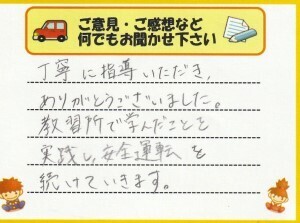 ご意見・ご感想など
何でもお聞かせ下さい
丁寧に指導いただき、
ありがとうございました。
教習所で学んだことを
実践し、安全運転を
続けていきます。